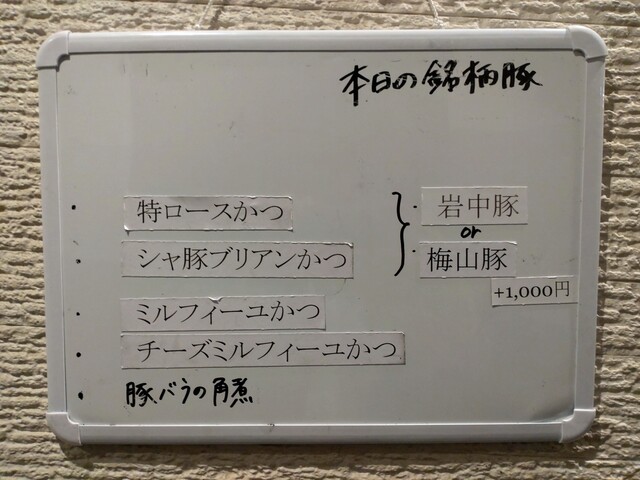 本日の銘柄豚
・ 特ロースかつ
・ シャ豚ブリアンかつ
・ ミルフィーユかつ
・ チーズミルフィーユかつ
・ 豚バラの角煮
・岩中豚
or
・梅山豚
+1,000円